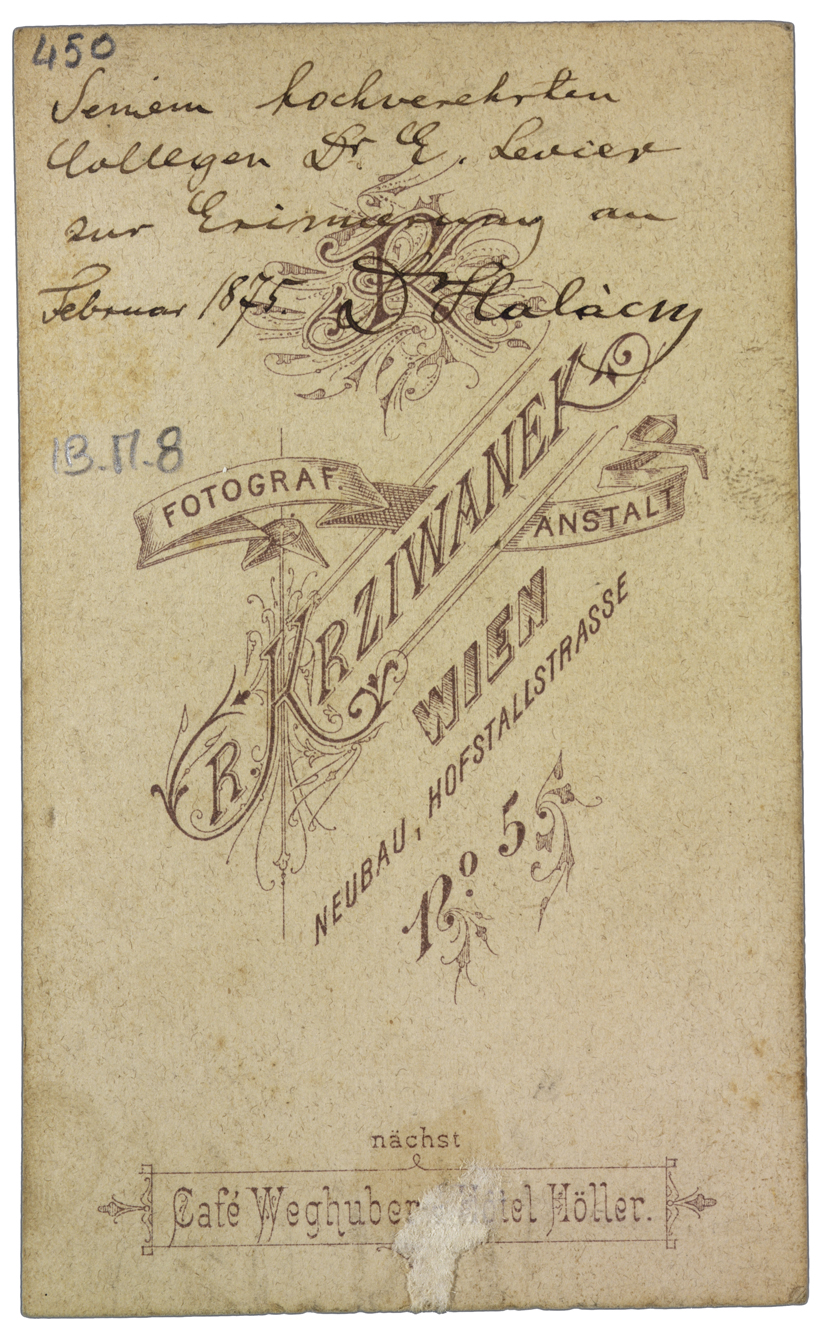 450
Seinem hochverehrten
Collegen Dr. E. Levier
zur Erinnerung an
Februar 1875. Dr Halácsy
13.П.8
FOTOGRAF. ANSTALT
R. KRZIWANEK
WIEN
NEUBAU, HOFSTALLSTRASSE
No 5
nächst
Café Weghuber Hôtel Höller.